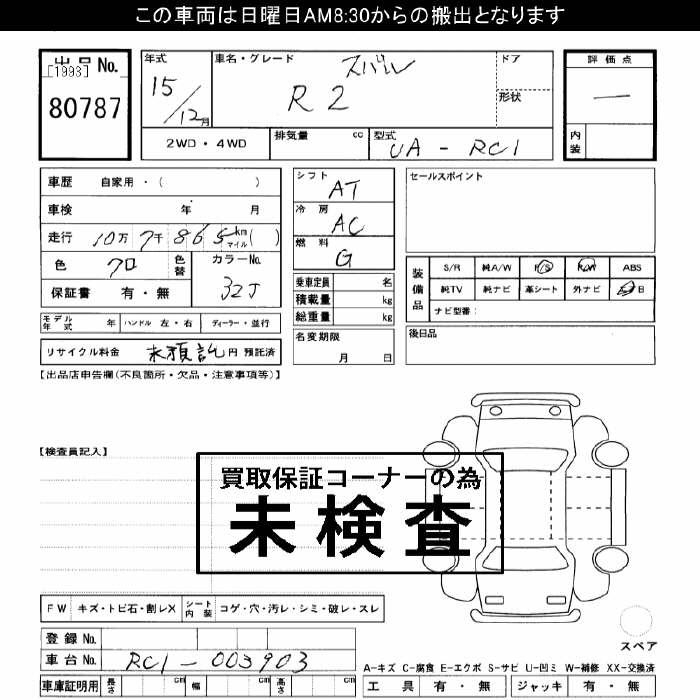 この車両は日曜日AM8:30からの搬出となります
出品 No.
[1993]
80787
年式 車名・グレード ドア
15/12月 スバル R2
形状
2WD・4WD 排気量 cc 型式 UA-RC1
評価点
—
内装
車歴 自家用・( )
車検 年 月
走行 10万7千865 km マイル ( )
色 クロ 色替 カラーNo. 32J
保証書 有・無
シフト AT
冷房 AC
燃料 G
乗車定員 名
積載量 kg
総重量 kg
名変期限 月 日
セールスポイント
装備品 S/R 純A/W P/S P/W ABS
純TV 純ナビ 革シート 外ナビ 日
ナビ型番:
後日品
モデル年式 年 ハンドル 左・右 ディーラー・並行
リサイクル料金 未預託 円 預託済
【出品店申告欄(不良箇所・欠品・注意事項等)】
【検査員記入】
買取保証コーナーの為
未検査
FW キズ・トビ石・割レX シート内装 コゲ・穴・汚レ・シミ・破レ・スレ
登録 No.
車台 No. RC1-003903
車庫証明用 長さ cm 幅 cm 高さ cm
スペア
A-キズ C-腐食 E-エクボ S-サビ U-凹ミ W-補修 XX-交換済
工具 有・無 ジャッキ 有・無